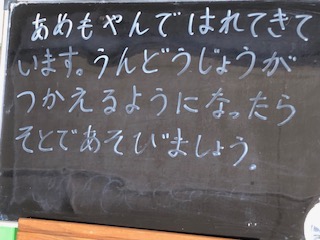 あめもやんで はれてきて
います。うんどうじょうが
つかえるようになったら
そとであそびましょう。